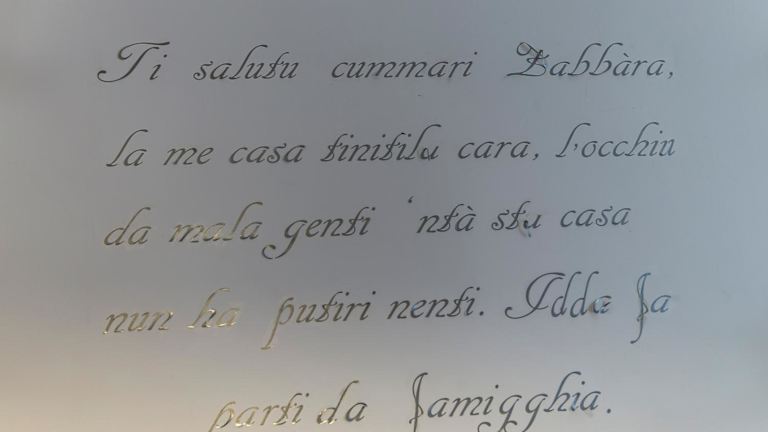 Ti salutu cummari Zabbàra,
la me casa tinitila cara, l'occhiu
da mala genti 'ntà stu casa
nun ha putiri nenti. Idda fa
parti da famigghia.